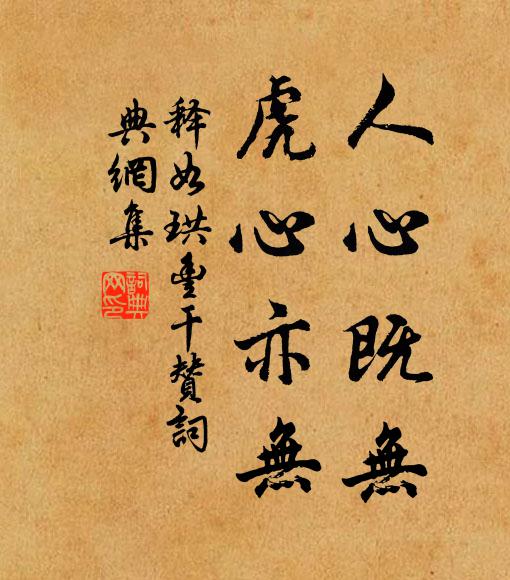 人心既無
虎心亦無
释如珙豐干赞詞
典網集
詞典
网印